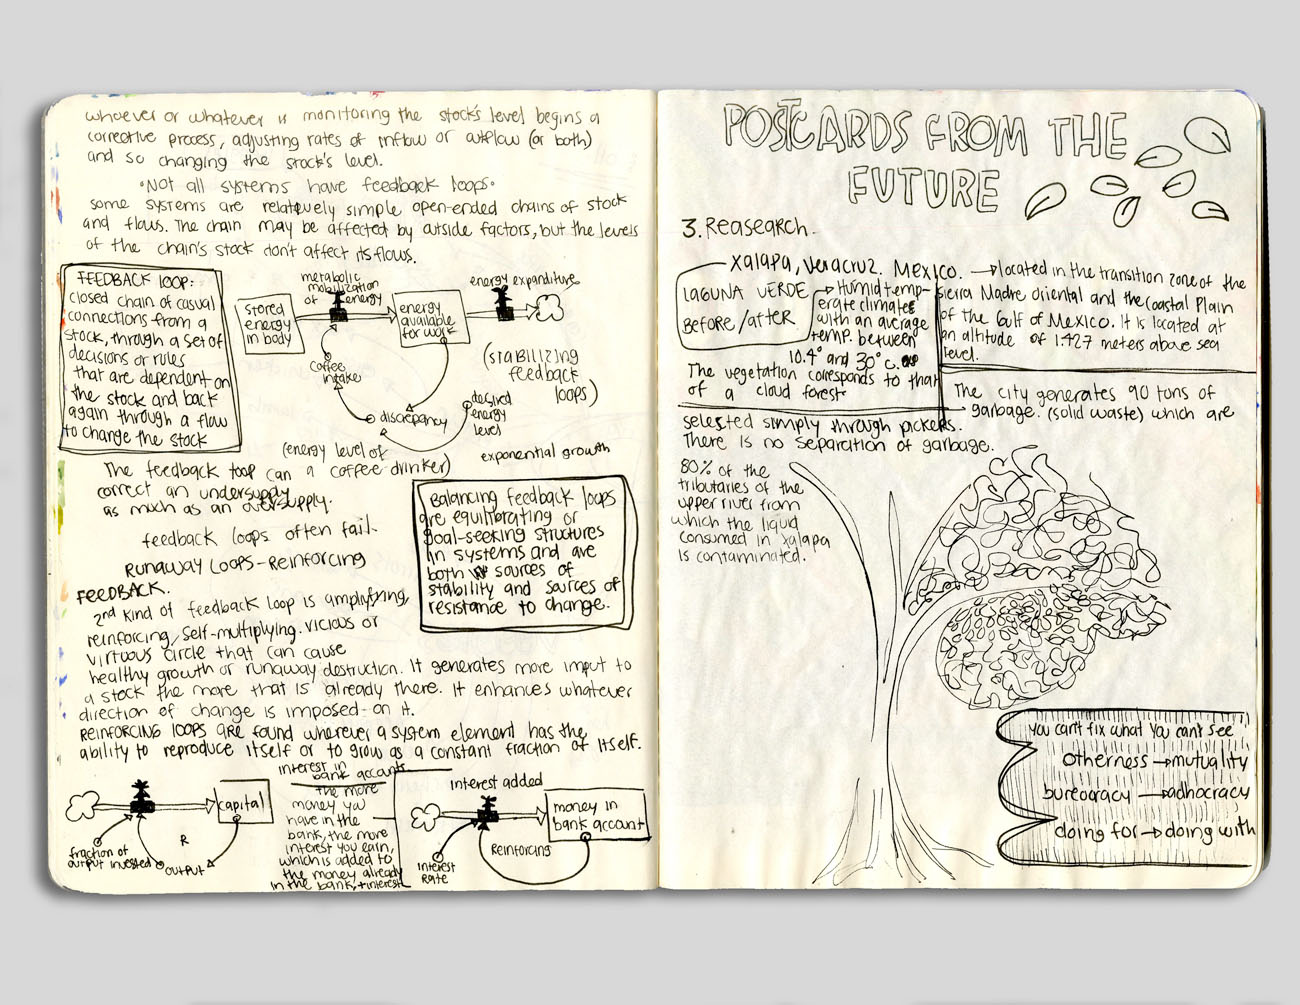 whoever or whatever is monitoring the stock's level begins a
corrective process, adjusting rates of inflow or outflow (or both)
and so changing the stock's level.
•Not all systems have feedback loops•
some systems are relatively simple open-ended chains of stock
and flows. The chain may be affected by outside factors, but the levels
of the chain's stock don't affect its flows.
FEEDBACK LOOP:
closed chain of casual
connections from a
stock, through a set of
decisions or rules
that are dependent on
the stock and back
again through a flow
to change the stock
metabolic
mobilization
of energy
energy expanditure
stored
energy
in body
energy
available
for work
Coffee
intake
discrepancy
desired
energy
level
(STABILIZING
FEEDBACK
LOOPS)
(energy level of
a coffee drinker)
exponential growth
The feedback loop can
correct an undersupply
as much as an oversupply.
feedback loops often fail.
RUNAWAY LOOPS-REINFORCING
FEEDBACK.
Balancing feedback loops
are equilibrating or
goal-seeking structures
in systems and are
both sources of
stability and sources of
resistance to change.
2nd kind of feedback loop is amplyfying,
reinforcing, self-multiplying. vicious or
virtuous circle that can cause
healthy growth or runaway destruction. It generates more imput to
a stock the more that is already there. It enhances whatever
direction of change is imposed on it.
REINFORCING LOOPS are found wherever a system element has the
ability to reproduce itself or to grow as a constant fraction of itself.
capital
fraction of
output invested
R
OUTPUT
interest in
bank accounts
the more
money you
have in the
bank, the more
interest you earn,
which is added to
the money already
in the bank, + interest
interest added
money in
bank account
Interest
Rate
REINFORCING
POSTCARDS FROM THE
FUTURE
3. Reasearch.
Xalapa, Veracruz. Mexico. → located in the transition zone of the
Sierra Madre Oriental and the Coastal Plain
of the Gulf of Mexico. It is located at
an altitude of 1.427 meters above sea
level.
LAGUNA VERDE
BEFORE/AFTER
→ Humid temp-
erate climates
with an average
temp. between
10.4° and 30° c.
The vegetation corresponds to that
of a cloud forest
The city generates 90 tons of
garbage. (solid waste) which are
selected simply through pickers.
There is no separation of garbage.
80% of the
tributaries of the
upper river from
which the liquid
consumed in xalapa
is contaminated.
you can't fix what you can't see
otherness → mutuality
bureocracy → adhocracy
doing for → doing with